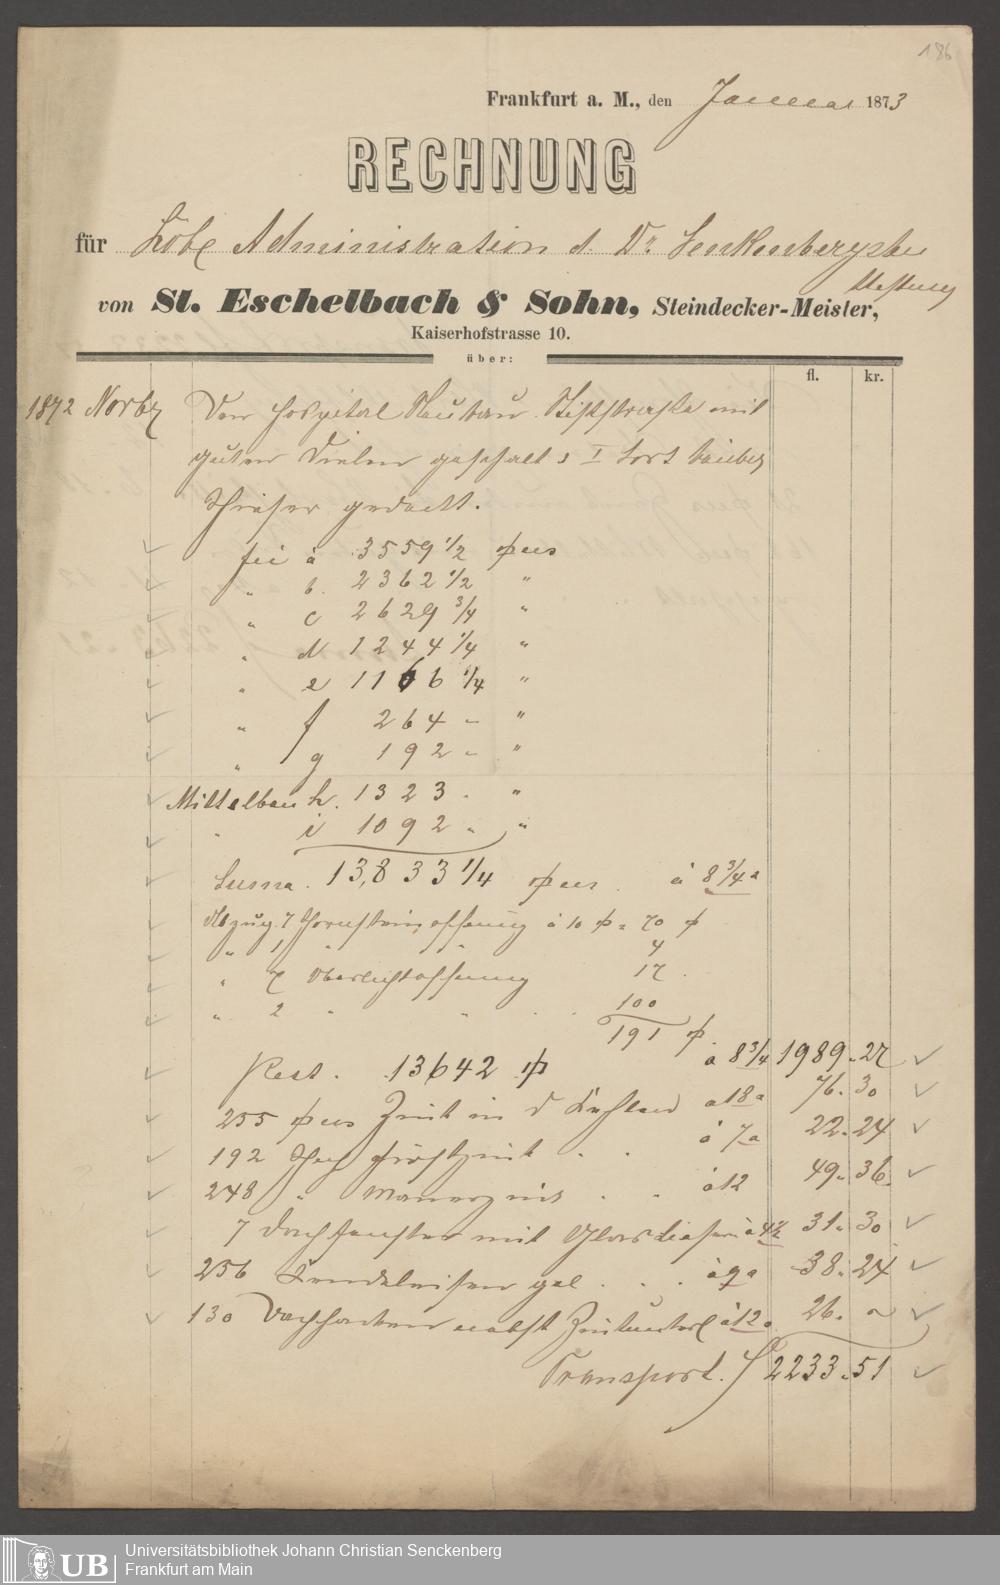 186
Frankfurt a. M., den Januar 1873
RECHNUNG
für Löbl Administration d. Dr Senkenbergschen
Stiftung
von St. Eschelbach & Sohn, Steindecker-Meister,
Kaiserhofstrasse 10.
über:
fl. kr.
1872 Novbr Den Hospital Neubau Stiftstrasse mit
guten Dielen geschalt u I Sort Cauber
Schiefer gedeckt.
à 3559 1/2
„ b. 2362 1/2 „
„ c 2629 3/4 „
„ d 1244 1/4 „
„ e 1166 1/4 „
„ f 264 – „
„ g 192 – „
Mittelbau h. 1323 – „
„ i 1092 „ „
Summa. 13,833 1/4 à 8 3/4
Abzug 7 Schornstein öffnung à 10 = 70
„ 1 „ „ 4
„ Oberlichtöffnung 17
„ 2 „ „ 100
191
Rest. 13642 à 8 3/4 1989. 27
255 Zink in d Kehlen à 18 76. 30
192 Sch Firstzink à 7 22. 24
248 „ à 12 49. 36
7 Dachfenster mit Glas liefern à 4 1/2 31. 30
256 à 9 38. 24
130 Dachhaken nebst à 12 26. –
Transport. f 2233. 51
Universitätsbibliothek Johann Christian Senckenberg
Frankfurt am Main
UB